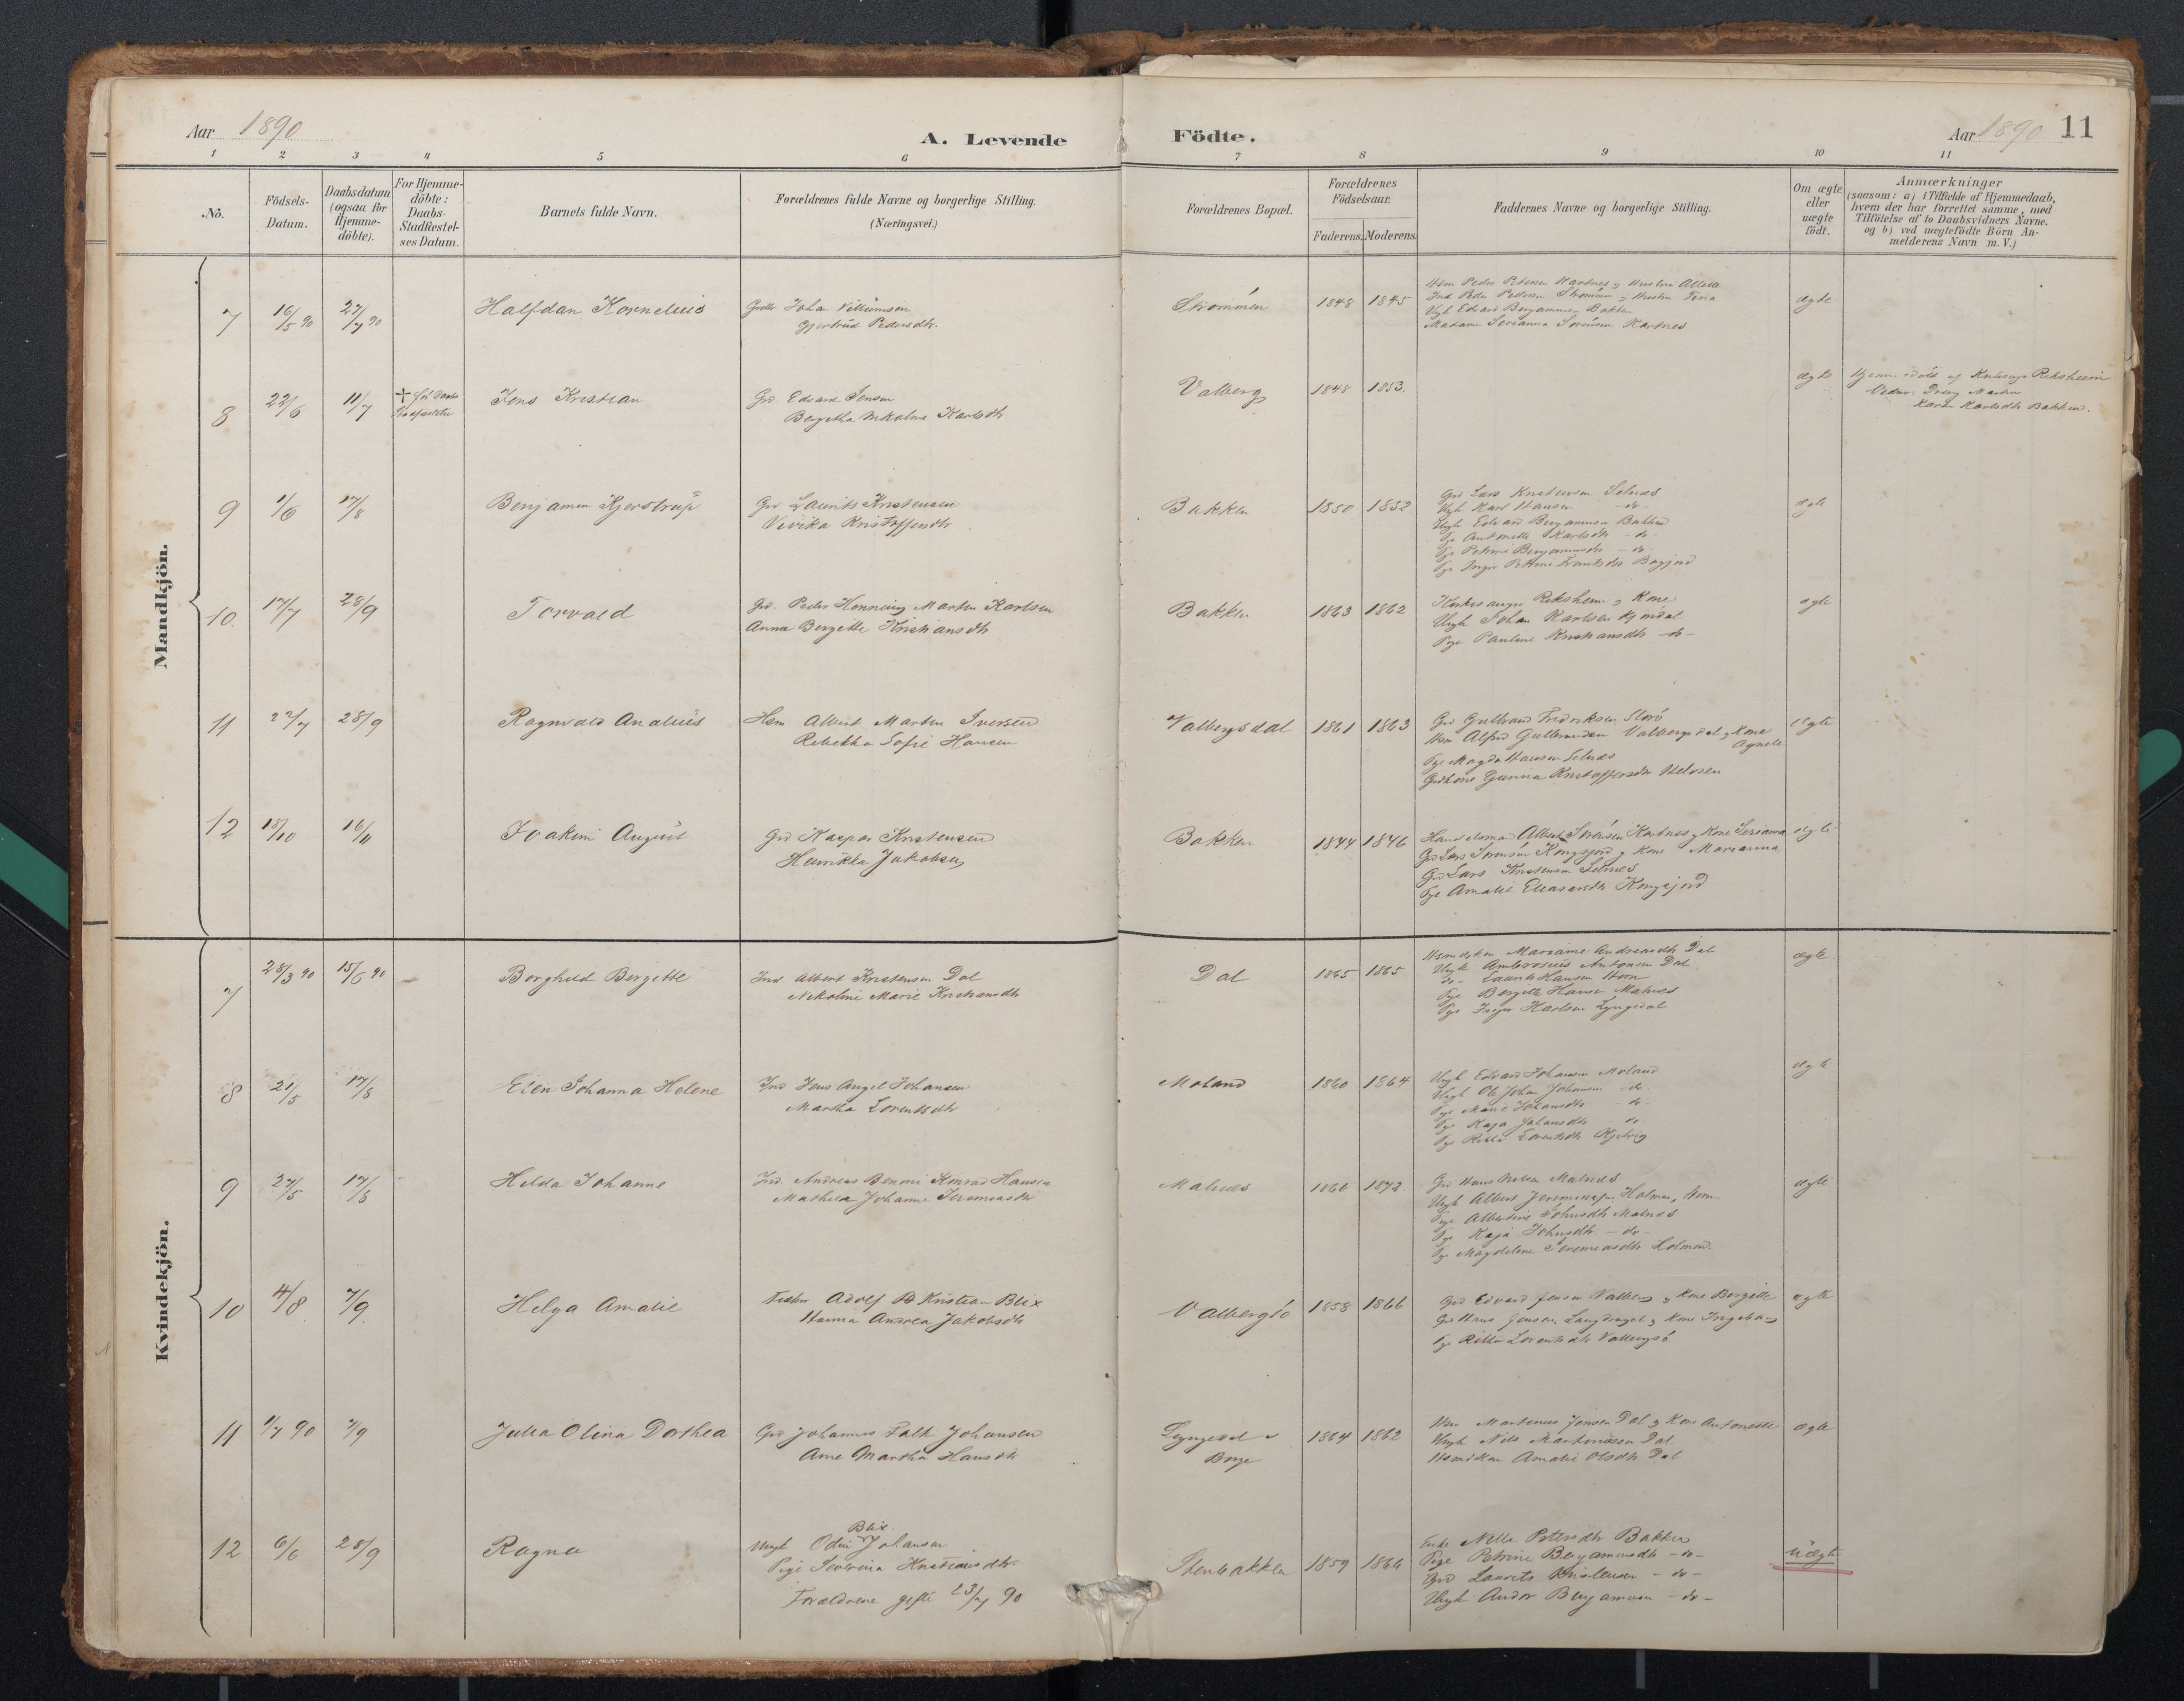 Aar 1890
A. Levende Födte.
Aar 1890 11
1 2 3 4 5 6 7 8 9 10 11
No.
Födsels-Datum.
Daabsdatum (ogsaa for Hjemme-döbte).
For Hjemme-döbte: Daabs-Stadfæstel-ses Datum.
Barnets fulde Navn.
Forældrenes fulde Navne og borgerlige Stilling.
(Næringsvei.)
Forældrenes Bopæl.
Forældrenes Födselsaar.
Faderens. Moderens.
Faddernes Navne og borgerlige Stilling.
Om ægte eller uægte födt.
Anmærkninger
(saasom: a) i Tilfælde af Hjemmedaab, hvem der har forrettet samme, med Tilföielse af to Daabsvidners Navne. og b) ved uægtefödte Börn An-melderens Navn m.V.)
Mandkjön.
7 16/5 90 27/7 90 Halfdan Kornelius
Johan Villumsen
Gjertrud Pedersdtr.
Strømmen 1848 1845
Edvard Benjaminsen Bakken
Madame Serianna Sørensen Kartnes
ægte
8 22/6 11/7 Jens Kristian
Grd Edvard Jensen
Bergetha Nikoline Karlsdtr
Valberg 1848 1853.
ægte
Karen Karlsdtr Bakken.
9 1/6 17/8 Benjamin Hjerstrup
Grd Laurits Kristensen
Vivika Kristoffersdtr
Bakken 1850 1852
Grd Lars Kristensen Selnæs
Ungk Karl Hansen -do-
Ungk Edvard Benjaminsen Bakken
Pge Antonette Karlsdtr -do-
Pge Petrine Benjaminsdtr -do-
ægte
10. 17/7 28/9 Torvald
Grd. Peder Henning Martin Karlsen
Anna Bergette Kristiansdtr
Bakken 1863 1862
Kirkesanger Reksheim & Kone
Ungk Johan Karlsen
Pge Pauline Kristiansdtr -do-
ægte
11 22/7 28/9 Ragnvald Analius
Hsm Albert Martin Iversen
Rebekka Sofie Hansen
Valbergsdal 1861 1863
Grd Gulbrand Fredriksen Storö
Hsm Alfred Gulbrandsen Valbergsdal & Kone Agnete
Pge Magda Hansen Selnæs
Grdkone Gurina Kristoffersdtr
ægte
12 18/10 16/11 Joakim August
Grd Kaspar Kristensen
Henrikka Jakobsen
Bakken 1844 1846
Handelsmand Albert Sørensen Kartnes & Kone Serianna
Grd Lars Sørensen Kongsjord & Kone Marianna
Grd Lars Kristensen Selnæs
Pge Amalie Eliasardtr Kongsjord
ægte
Kvindekjön.
7 28/3 90 15/6 90 - Borghild Bergitte
Ind Albert Kristensen Dal
Nikoline Marie Kristiansdtr
Dal 1865 1865
Mariane Andreasdtr Dal
Ungk Ambrosius Antonsen Dal
do- Laurits Hansen Horn
Pge Bergitte Hansen Malnes
Pge Inger Karlsen Lyngedal
ægte
8 21/5 17/8 Elen Johanna Helene
Ind Jens Angel Johansen
Martha Lorentsdtr
Moland 1860 1864
Ungk Edvard Johansen Moland
Ungk Ole Johan Johansen -do-
Pge Marie Johansdtr -do-
Pge Kaja Johansdtr -do-
Pge Rikka Lorentsdtr
ægte
9 27/5 17/8 Helda Johanne
Ind. Andreas Benoni Konrad Hansen
Mathilda Johanne Jeremiasdtr
Malnes 1866 1872
Grd Hans Nilsen Malnes
Ungk Albert Jeremiassen Holmen, Horn.
Pge Albertine Johnsdtr Malnes
Pge Kaja Johnsdtr -do-
Pge Magdelene Jeremiasdtr Holmen.
ægte
10 4/8. 7/9. Helga Amalie
Adolf B Kristian Blix
Hanna Andrea Jakobsdtr
Valbergsö 1858 1866
Grd Edvard Jensen Valberg & Kone Bergitte
Grd Hans Jensen, Langdraget & Kone Ingeborg
Pge Rikka Lorentsdtr Valbergsö
ægte
11 1/7 90 7/9 Julia Olina Dorthea
Grd Johannes Falk Johansen
Ane Martha Hansdtr
Lyngedal
Borge
1864 1862
Hsm Martinus Jensen Dal & Kone Antonette
Ungk Nils Martinussen Dal
Amalie Olsdtr Dal
ægte
12 6/6 28/9 Ragna
Blix
Ungk Odin Johansen
Pige Severina Kristiansdtr
Forældrene gifte 23/7 90
Stenbakken 1859 1866
Enke Nella Petersdtr Bakken
Pige Petrine Benjaminsdtr -do-
Grd Laurits Kristensen -do-
Ungk Andor Benjaminsen -do-
uægte